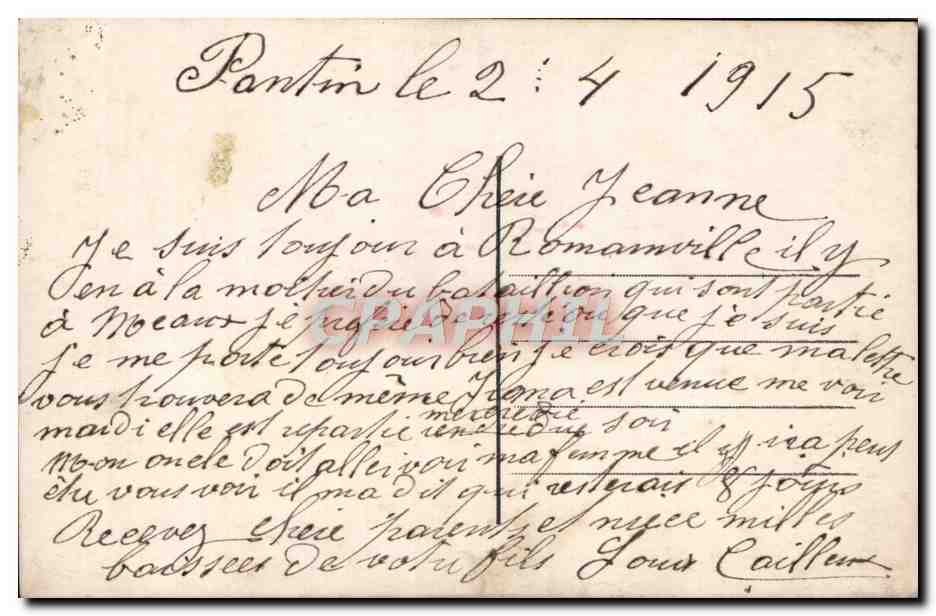 Pantin le 2 : 4 1915
Ma Chère Jeanne
Je suis toujour à Romainville il y
en à la moitier du bataillion qui sont partie
à Meaux je de que je suis
je me porte toujour bien je crois que ma lettre
vous trouvera de même est venue me voir
mardi elle est repartie mercredie soir
Mon oncle doit aller voir ma femme il ira peut
être vous voir il ma dit qui resterais 8 jours
Recevez chère parents et niece milles
baissees de votre fils Louis Cailleux
CPAPHIL